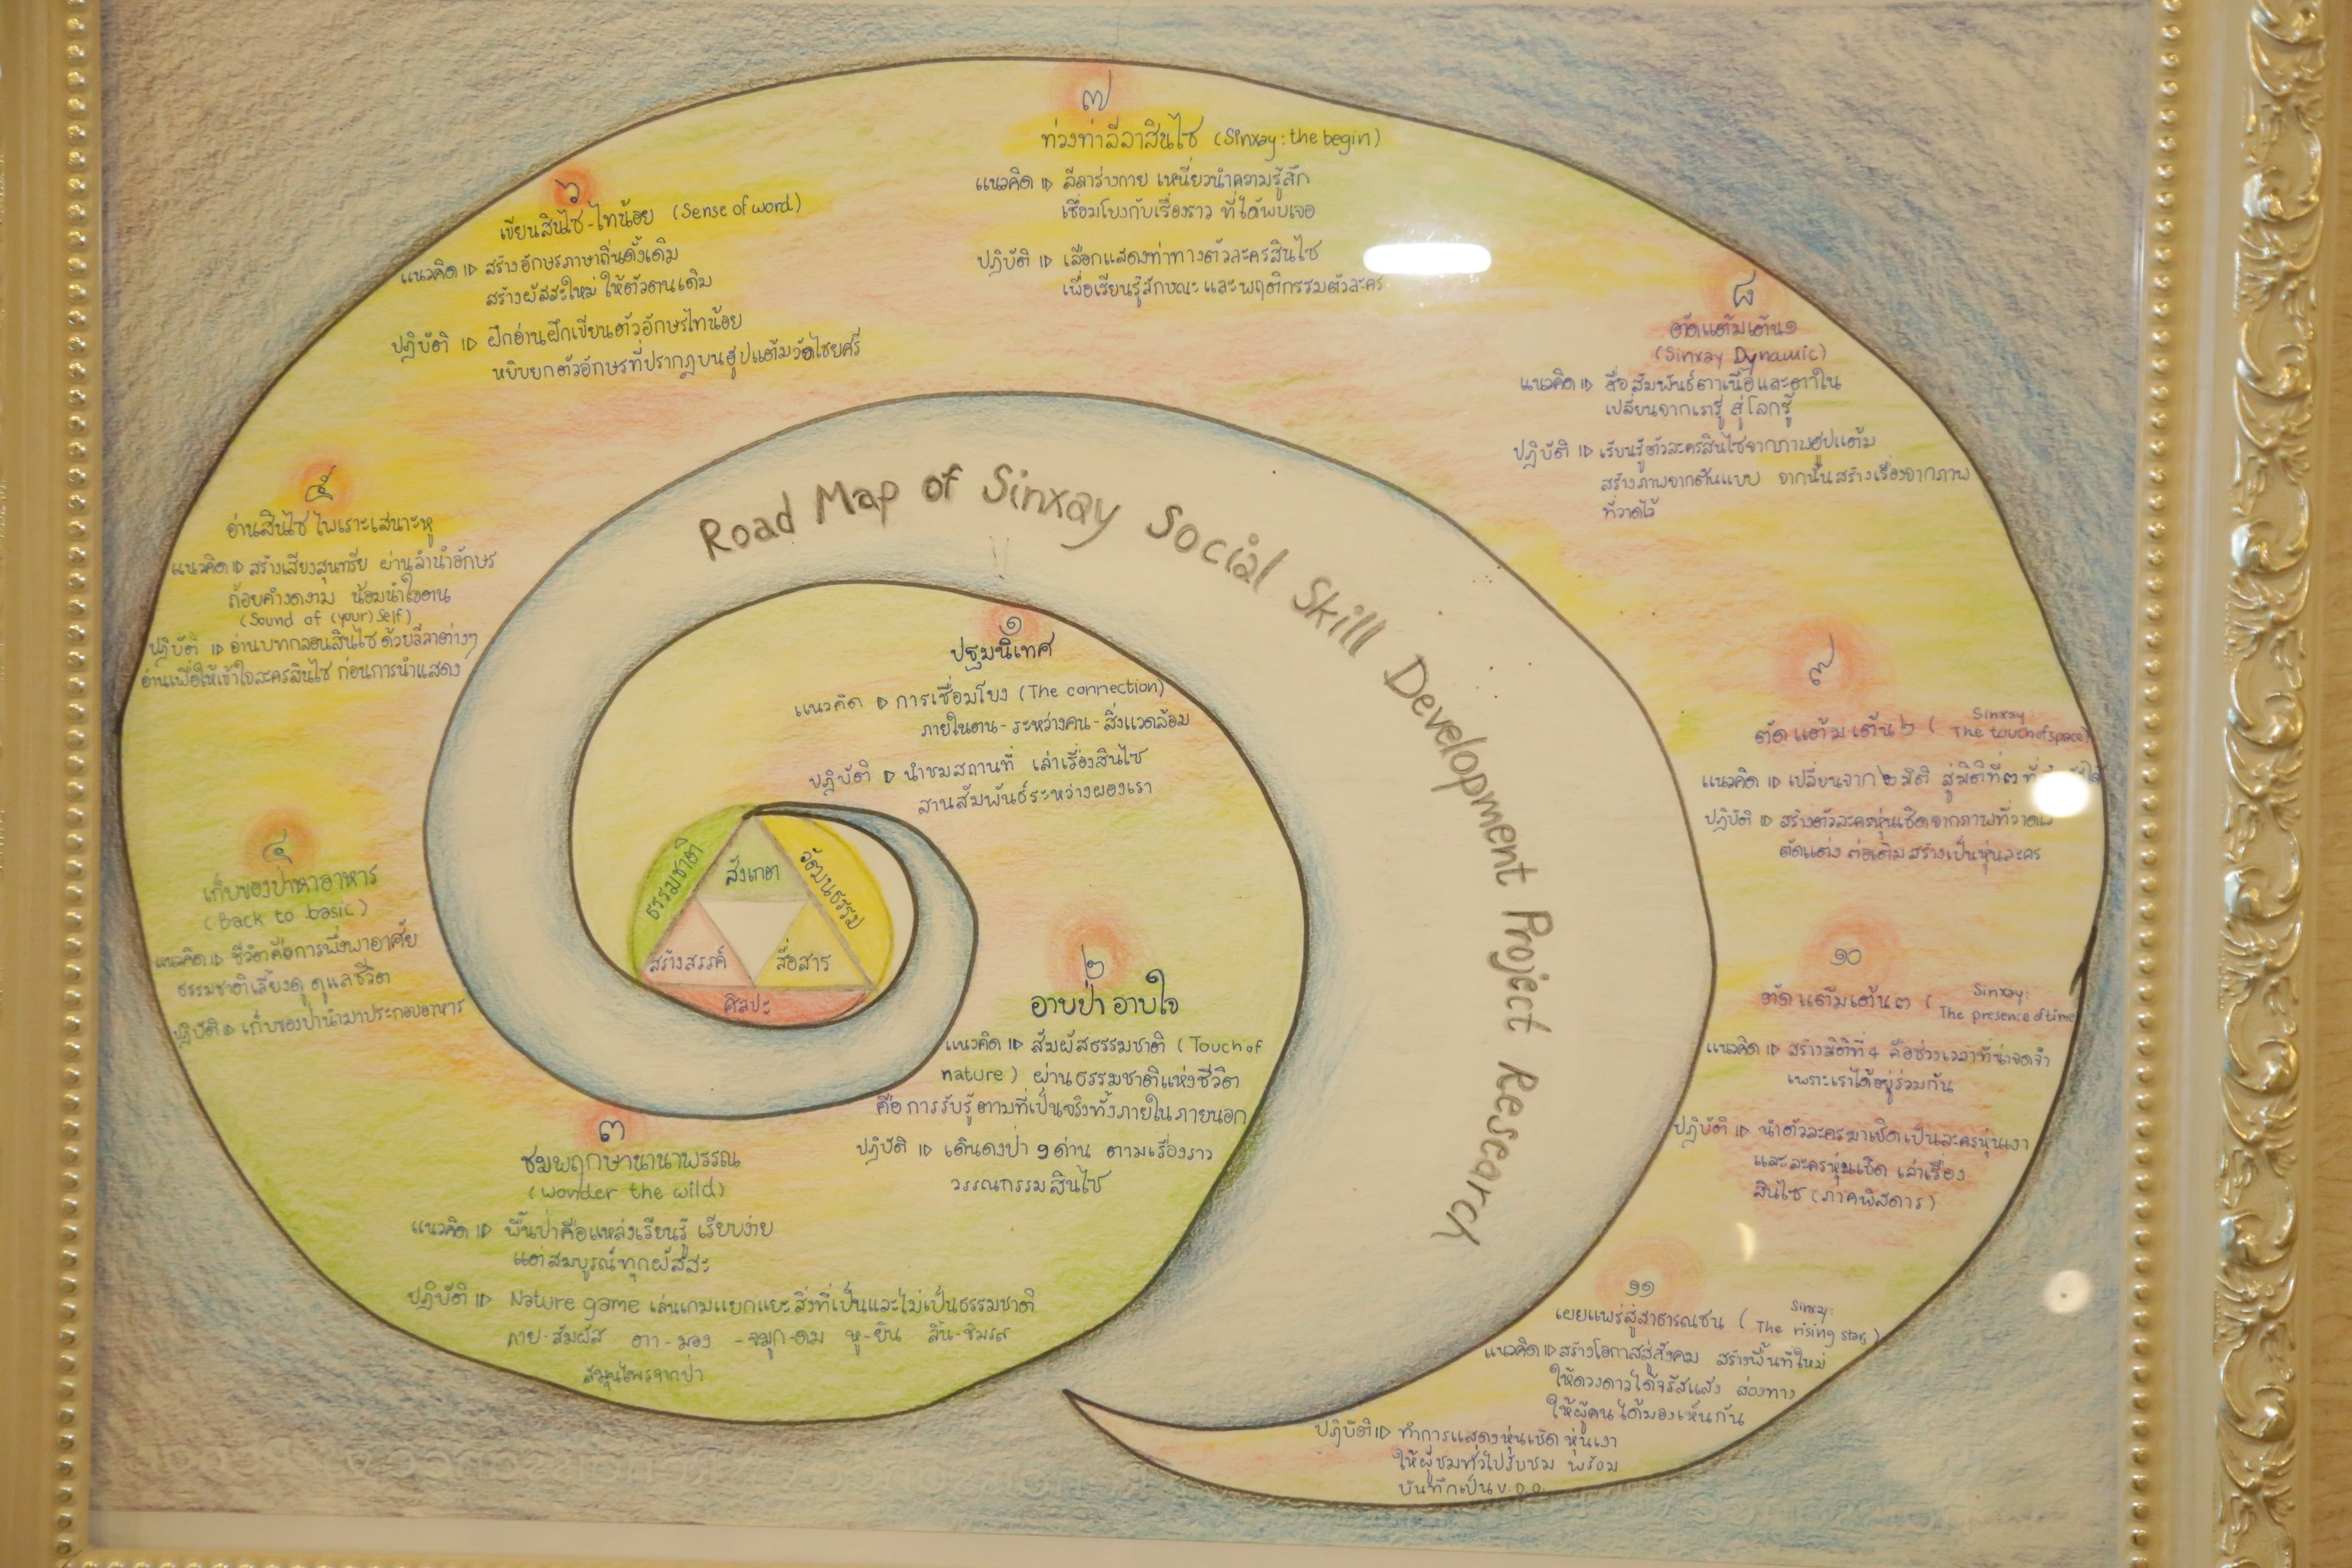 Road Map of Sinxay Social Skill Development Project Research
ธรรมชาติ
วัฒนธรรม
สังเกต
สร้างสรรค์
สื่อสาร
ศิลปะ
๑
ปฐมนิเทศ
แนวคิด ▷ การเชื่อมโยง (The connection)
ภายในตน - ระหว่างคน - สิ่งแวดล้อม
ปฏิบัติ ▷ นำชมสถานที่ เล่าเรื่องสินไซ
สานสัมพันธ์ระหว่างผองเรา
๒
อาบป่า อาบใจ
แนวคิด ▷ สัมผัสธรรมชาติ (Touch of
nature) ผ่านธรรมชาติแห่งชีวิต
คือ การรับรู้ตามที่เป็นจริงทั้งภายใน ภายนอก
ปฏิบัติ ▷ เดินดงป่า ๑ ด่าน ตามเรื่องราว
วรรณกรรมสินไซ
๓
ชมพฤกษานานาพรรณ
(wonder the wild)
แนวคิด ▷ พื้นป่าคือแหล่งเรียนรู้ เรียบง่าย
แต่สมบูรณ์ทุกผัสสะ
ปฏิบัติ ▷ Nature game เล่นเกมแยกแยะสิ่งที่เป็นและไม่เป็นธรรมชาติ
กาย-สัมผัส ตา-มอง -จมูก-ดม หู-ยิน ลิ้น-ชิมรส
สมุนไพรจากป่า
๔
เก็บของป่าหาอาหาร
(Back to basic)
แนวคิด ▷ ชีวิตคือการพึ่งพาอาศัย
ธรรมชาติเลี้ยงดู ดูแลชีวิต
ปฏิบัติ ▷ เก็บของป่านำมาประกอบอาหาร
๕
อ่านสินไซ ไพเราะเสนาะหู
แนวคิด ▷ สร้างเสียงสุนทรีย ผ่านลำนำอักษร
ถ้อยคำงดงาม น้อมนำใจตน
(Sound of (your) self)
ปฏิบัติ ▷ อ่านบทกลอนสินไซ ด้วยลีลาต่างๆ
อ่านเพื่อให้เข้าใจละครสินไซ ก่อนการนำแสดง
๖
เขียนสินไซ-ไทน้อย (Sense of word)
แนวคิด ▷ สร้างอักษรภาษาถิ่นดั้งเดิม
สร้างผัสสะใหม่ ให้ตัวตนเดิม
ปฏิบัติ ▷ ฝึกอ่านฝึกเขียนตัวอักษรไทน้อย
หยิบยกตัวอักษรที่ปรากฏบนฮูปแต้มวัดไชยศรี
๗
ท่วงท่าลีลาสินไซ (Sinxay: the begin)
แนวคิด ▷ ลีลาร่างกาย เหนี่ยวนำความรู้สึก
เชื่อมโยงกับเรื่องราว ที่ได้พบเจอ
ปฏิบัติ ▷ เลือกแสดงท่าทางตัวละครสินไซ
เพื่อเรียนรู้ลักษณะ และพฤติกรรมตัวละคร
๘
ตัดแต้มเต้น๑
(Sinxay Dynamic)
แนวคิด ▷ สื่อสัมพันธ์ตาเนื้อและตาใน
เปลี่ยนจากเรารู้ สู่โลกรู้
ปฏิบัติ ▷ เรียนรู้ตัวละครสินไซจากภาพฮูปแต้ม
สร้างภาพจากต้นแบบ จากนั้นสร้างเรื่องจากภาพ
ที่วาดไว้
๙
ตัดแต้มเต้น๒ (Sinxay: The touch of space)
แนวคิด ▷ เปลี่ยนจาก ๒ มิติ สู่มิติที่๓
ปฏิบัติ ▷ สร้างตัวละครหุ่นเชิดจากภาพที่วาด
ตัดแต่ง ต่อเติม สร้างเป็นหุ่นละคร
๑๐
ตัดแต้มเต้น๓ (Sinxay: The presence of time
แนวคิด ▷ สร้างมิติที่ 4 คือช่วงเวลาที่น่าจดจำ
เพราะเราได้อยู่ร่วมกัน
ปฏิบัติ ▷ นำตัวละครมาเชิดเป็นละครหุ่นเงา
และละครหุ่นเชิด เล่าเรื่อง
สินไซ (ภาคพิสดาร)
๑๑
เผยแพร่สู่สาธารณชน (Sinxay: The rising star)
แนวคิด ▷ สร้างโอกาสสู่สังคม สร้างพื้นที่ใหม่
ให้ดวงดาวได้จรัสแสง ส่องทาง
ให้ผู้คนได้มองเห็นกัน
ปฏิบัติ ▷ ทำการแสดงหุ่นเชิด หุ่นเงา
ให้ผู้ชมทั่วไปรับชม พร้อม
บันทึกเป็น V.D.O.